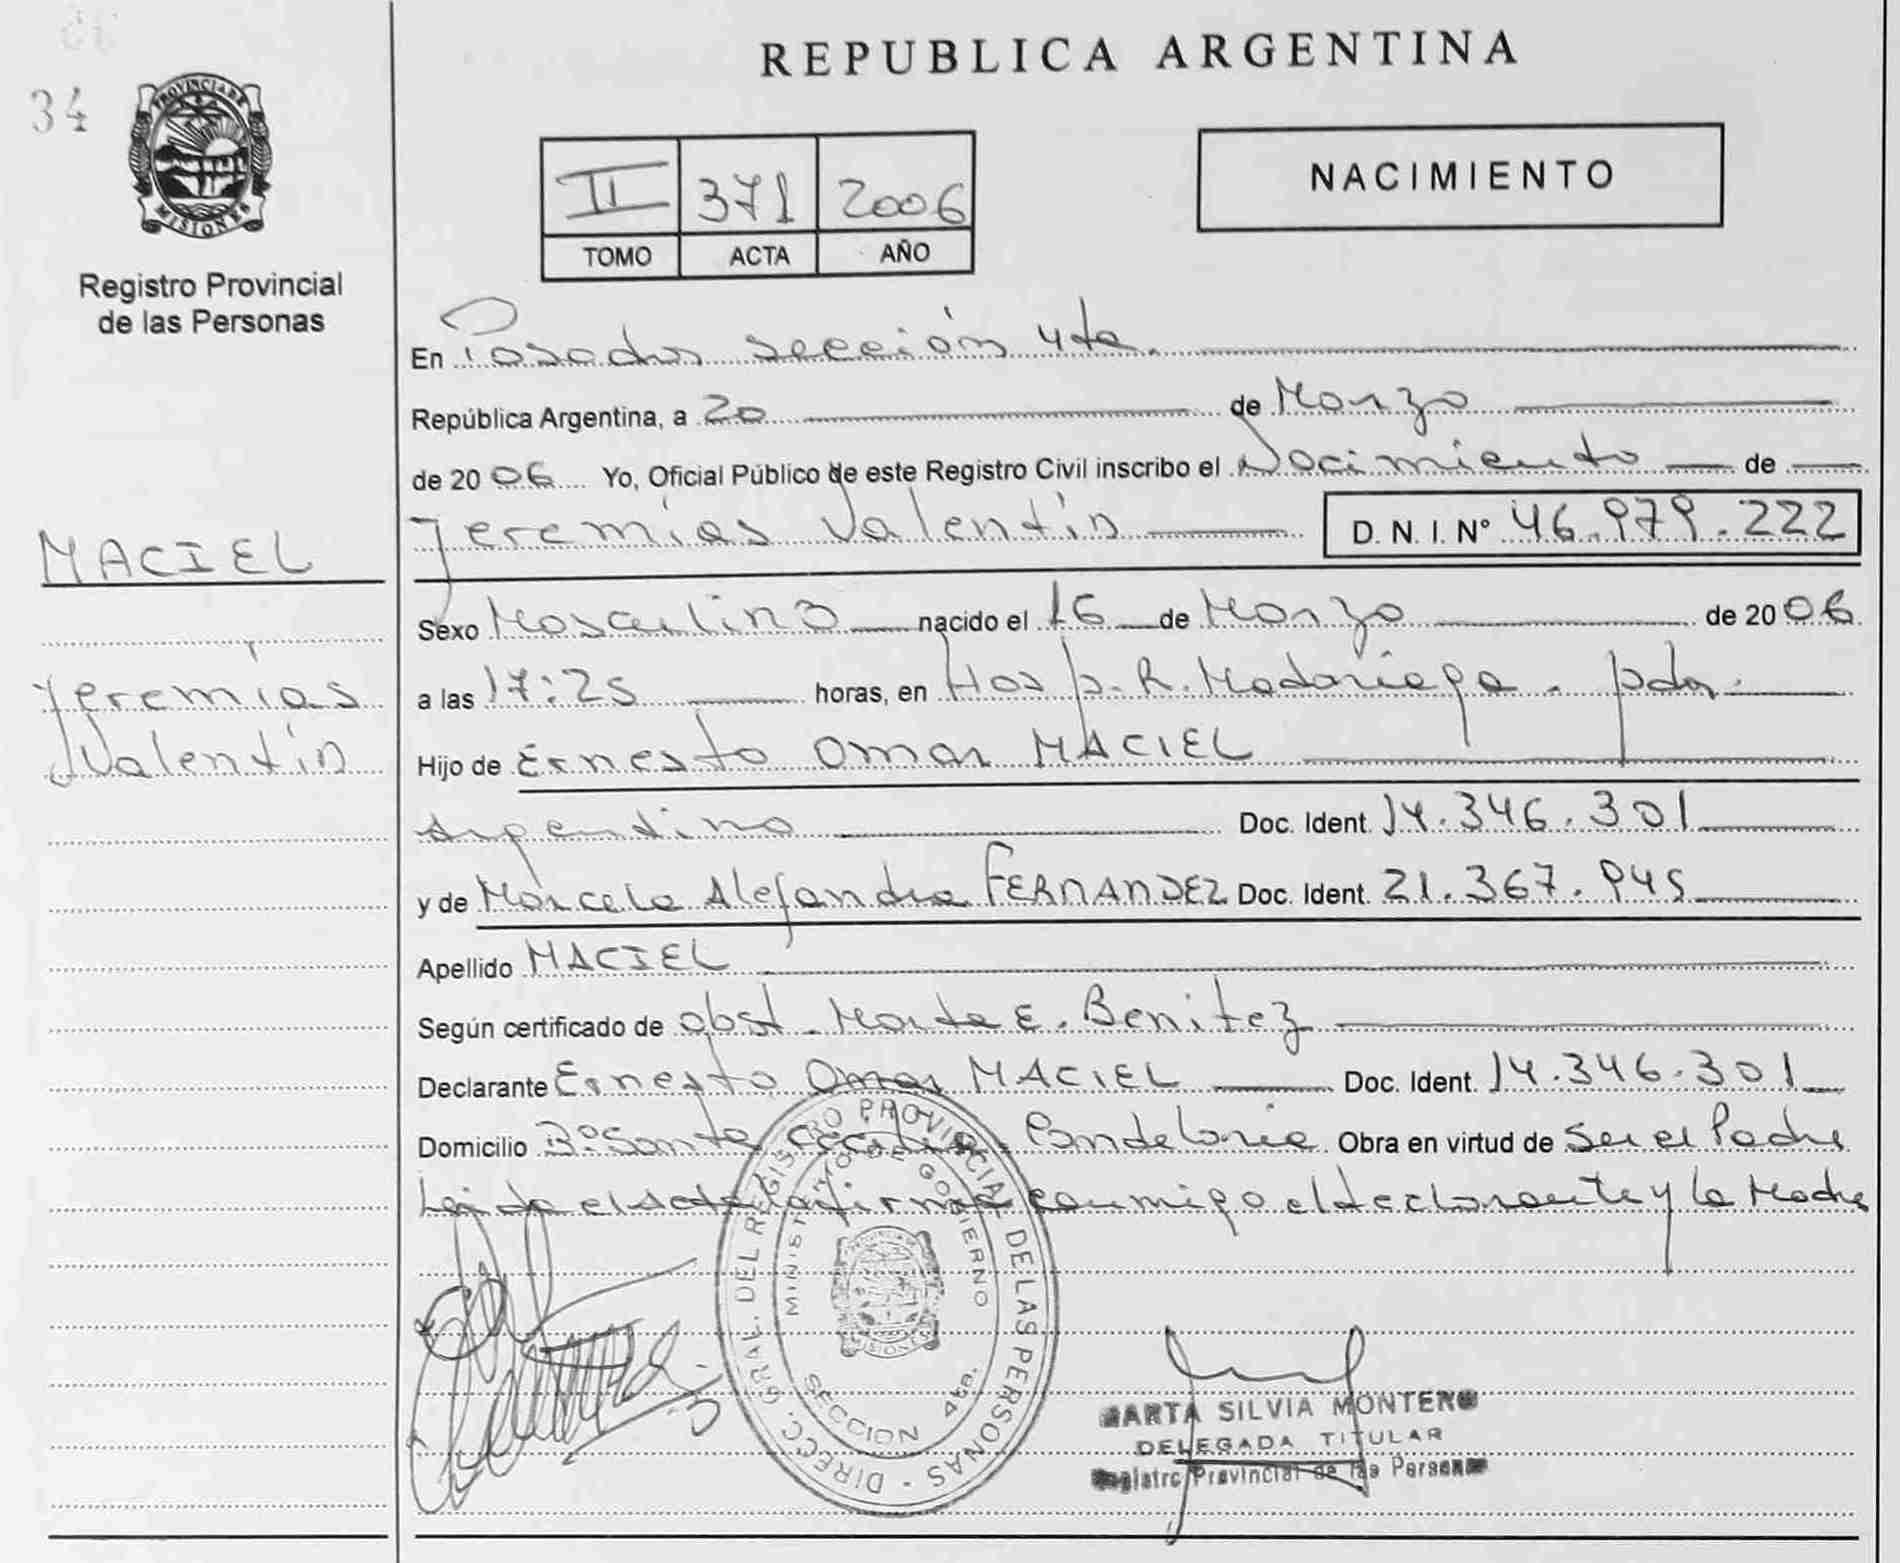 34
PROVINCIA DE
MISIONES
Registro Provincial
de las Personas
MACIEL
Jeremías
Valentín
REPUBLICA ARGENTINA
II 371 2006
TOMO ACTA AÑO
NACIMIENTO
En Posadas sección 4ta.
República Argentina, a 20 de Marzo
de 2006 Yo, Oficial Público de este Registro Civil inscribo el Nacimiento de
Jeremías Valentín D. N. I. N° 46.979.222
Sexo Masculino nacido el 16 de Marzo de 2006
a las 17:25 horas, en Hosp. R. Madariaga. pdas.
Hijo de Ernesto Omar MACIEL
Argentino Doc. Ident. 14.346.301
y de Marcela Alejandra FERNANDEZ Doc. Ident. 21.367.945
Apellido MACIEL
Según certificado de obst. Marta E. Benitez
Declarante Ernesto Omar MACIEL Doc. Ident. 14.346.301
Domicilio B° Santa Cecilia. Candelaria Obra en virtud de ser el Padre
Leída el acta la firman conmigo el declarante y la Madre
DIRECC. GRAL. DEL REGISTRO PROVINCIAL DE LAS PERSONAS
MINISTERIO DE GOBIERNO
SECCION 4ta.
MISIONES
MARTA SILVIA MONTERO
DELEGADA TITULAR
Registro Provincial de las Personas